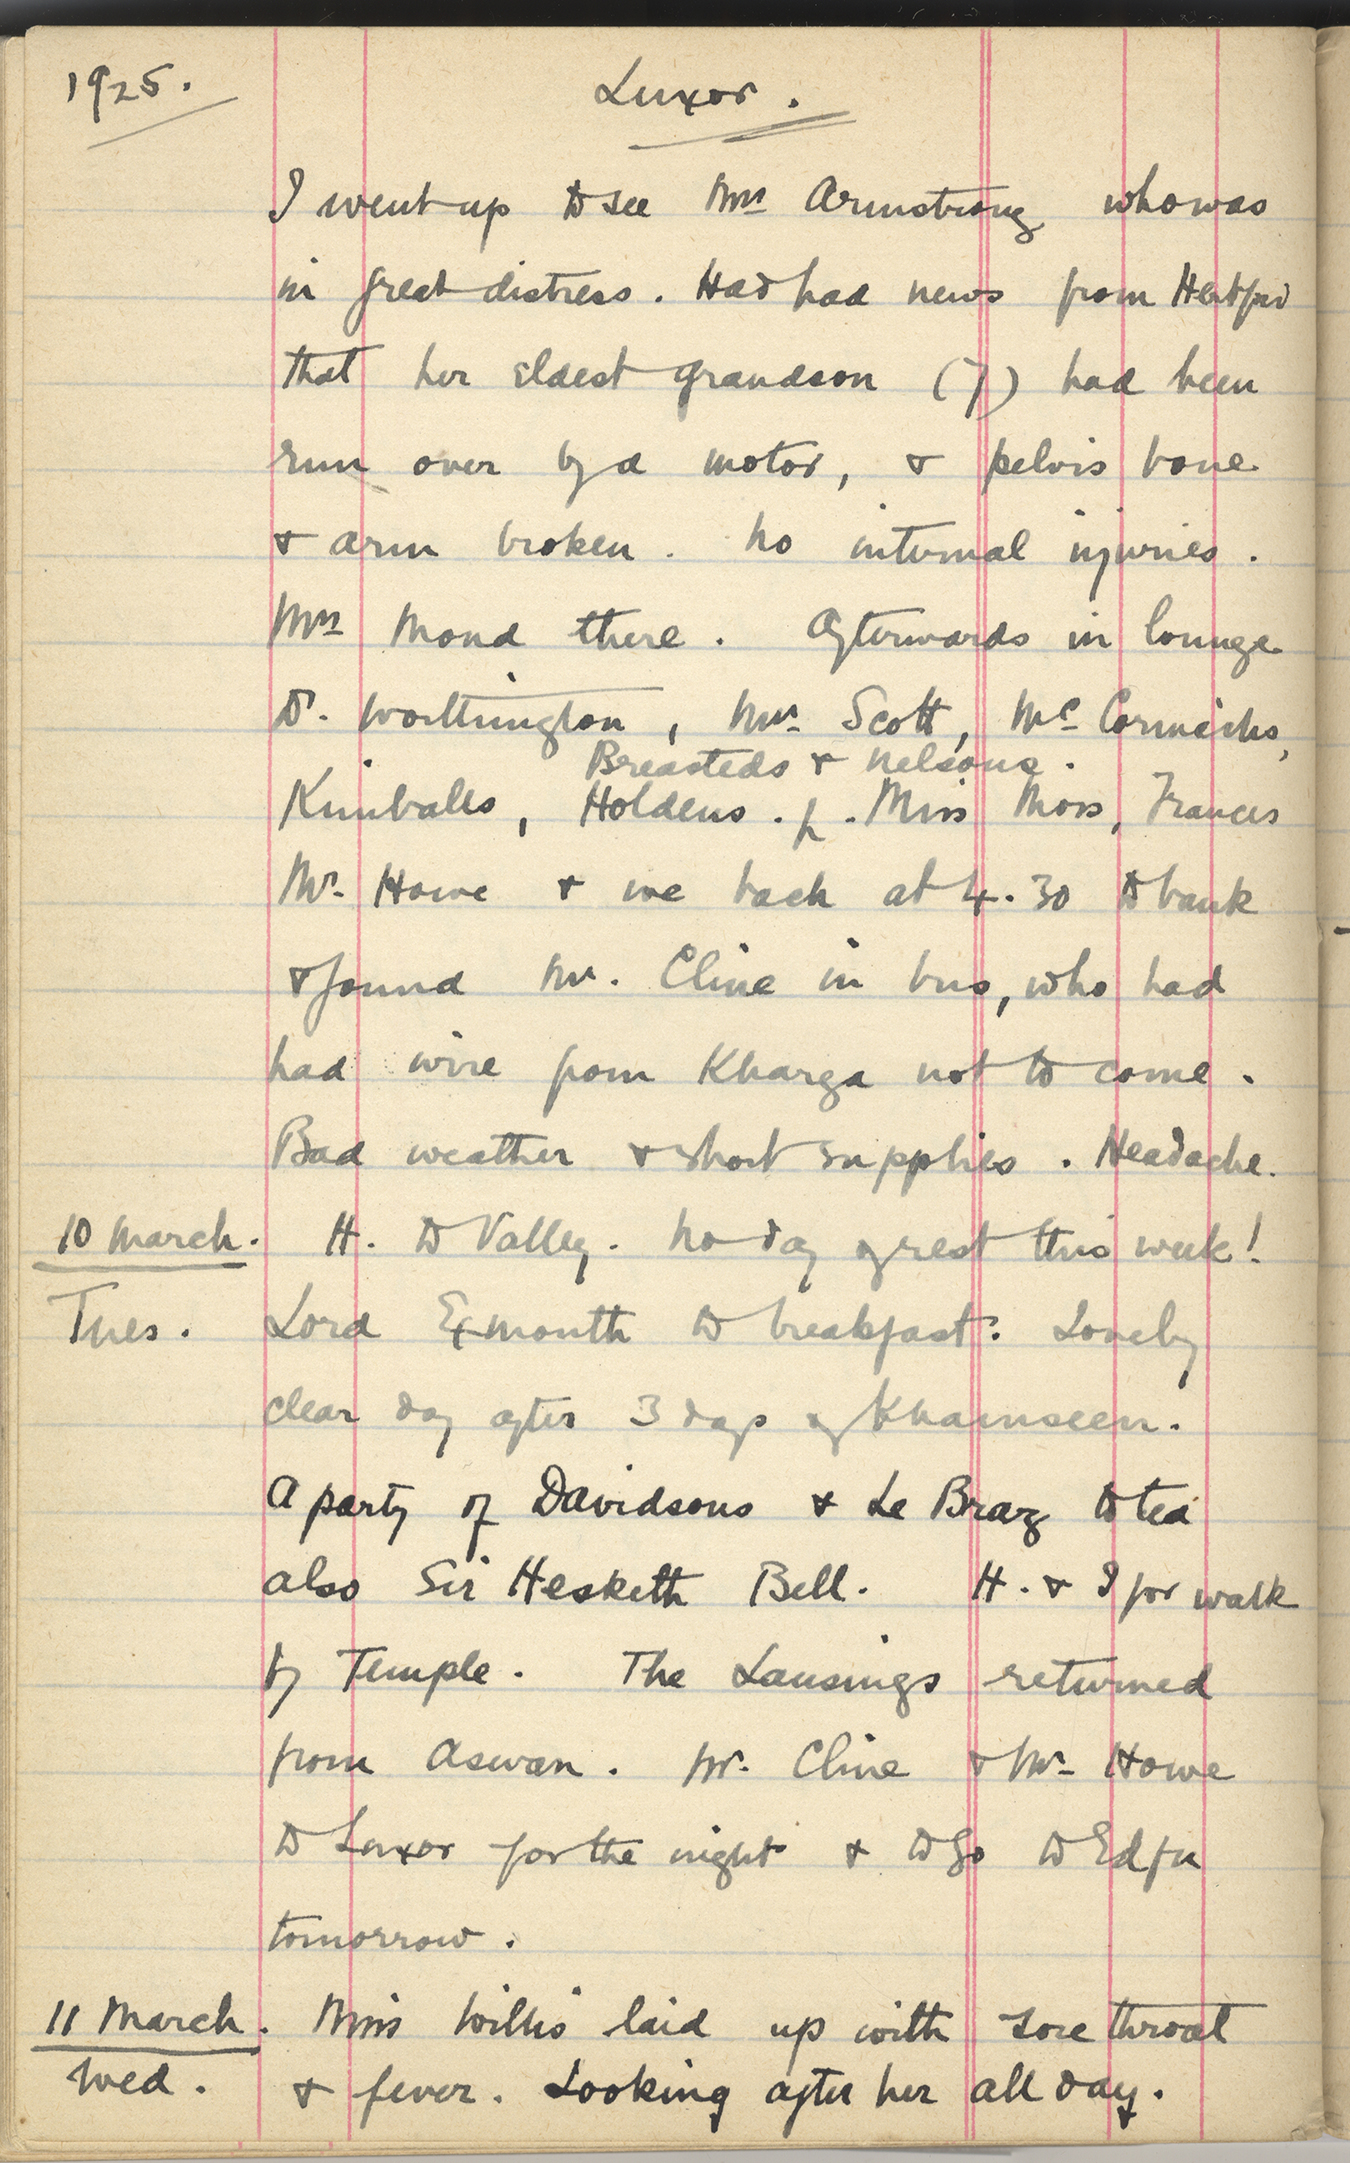 1925. Luxor.
I went up to see Mrs Armstrong who was
in great distress. Had had news from Hertford
that her eldest grandson (7) had been
run over by a motor, & pelvis bone
& arm broken. No internal injuries.
Mrs Mond there. Afterwards in lounge
Dr. Worthington, Mrs Scott, McCormicks,
Breasteds & Nelsons.
Kimballs, Holdens. Miss Moss, Frances
Mr. Howe & we back at 4.30 to bank
& found Mr. Cline in bus, who had
had wire from Kharga not to come.
Bad weather & short supplies. Headache.
10 March. H. to Valley. No day of rest this week!
Tues. Lord Exmouth to breakfast. Lovely
clear day after 3 days of Khamseen.
A party of Davidsons & Le Braz to tea
also Sir Hesketh Bell. H. & I for walk
by Temple. The Lansings returned
from Aswan. Mr. Cline & Mr. Howe
to Luxor for the night & to go to Edfu
tomorrow.
11 March. Miss Willis laid up with sore throat
Wed. & fever. Looking after her all day.